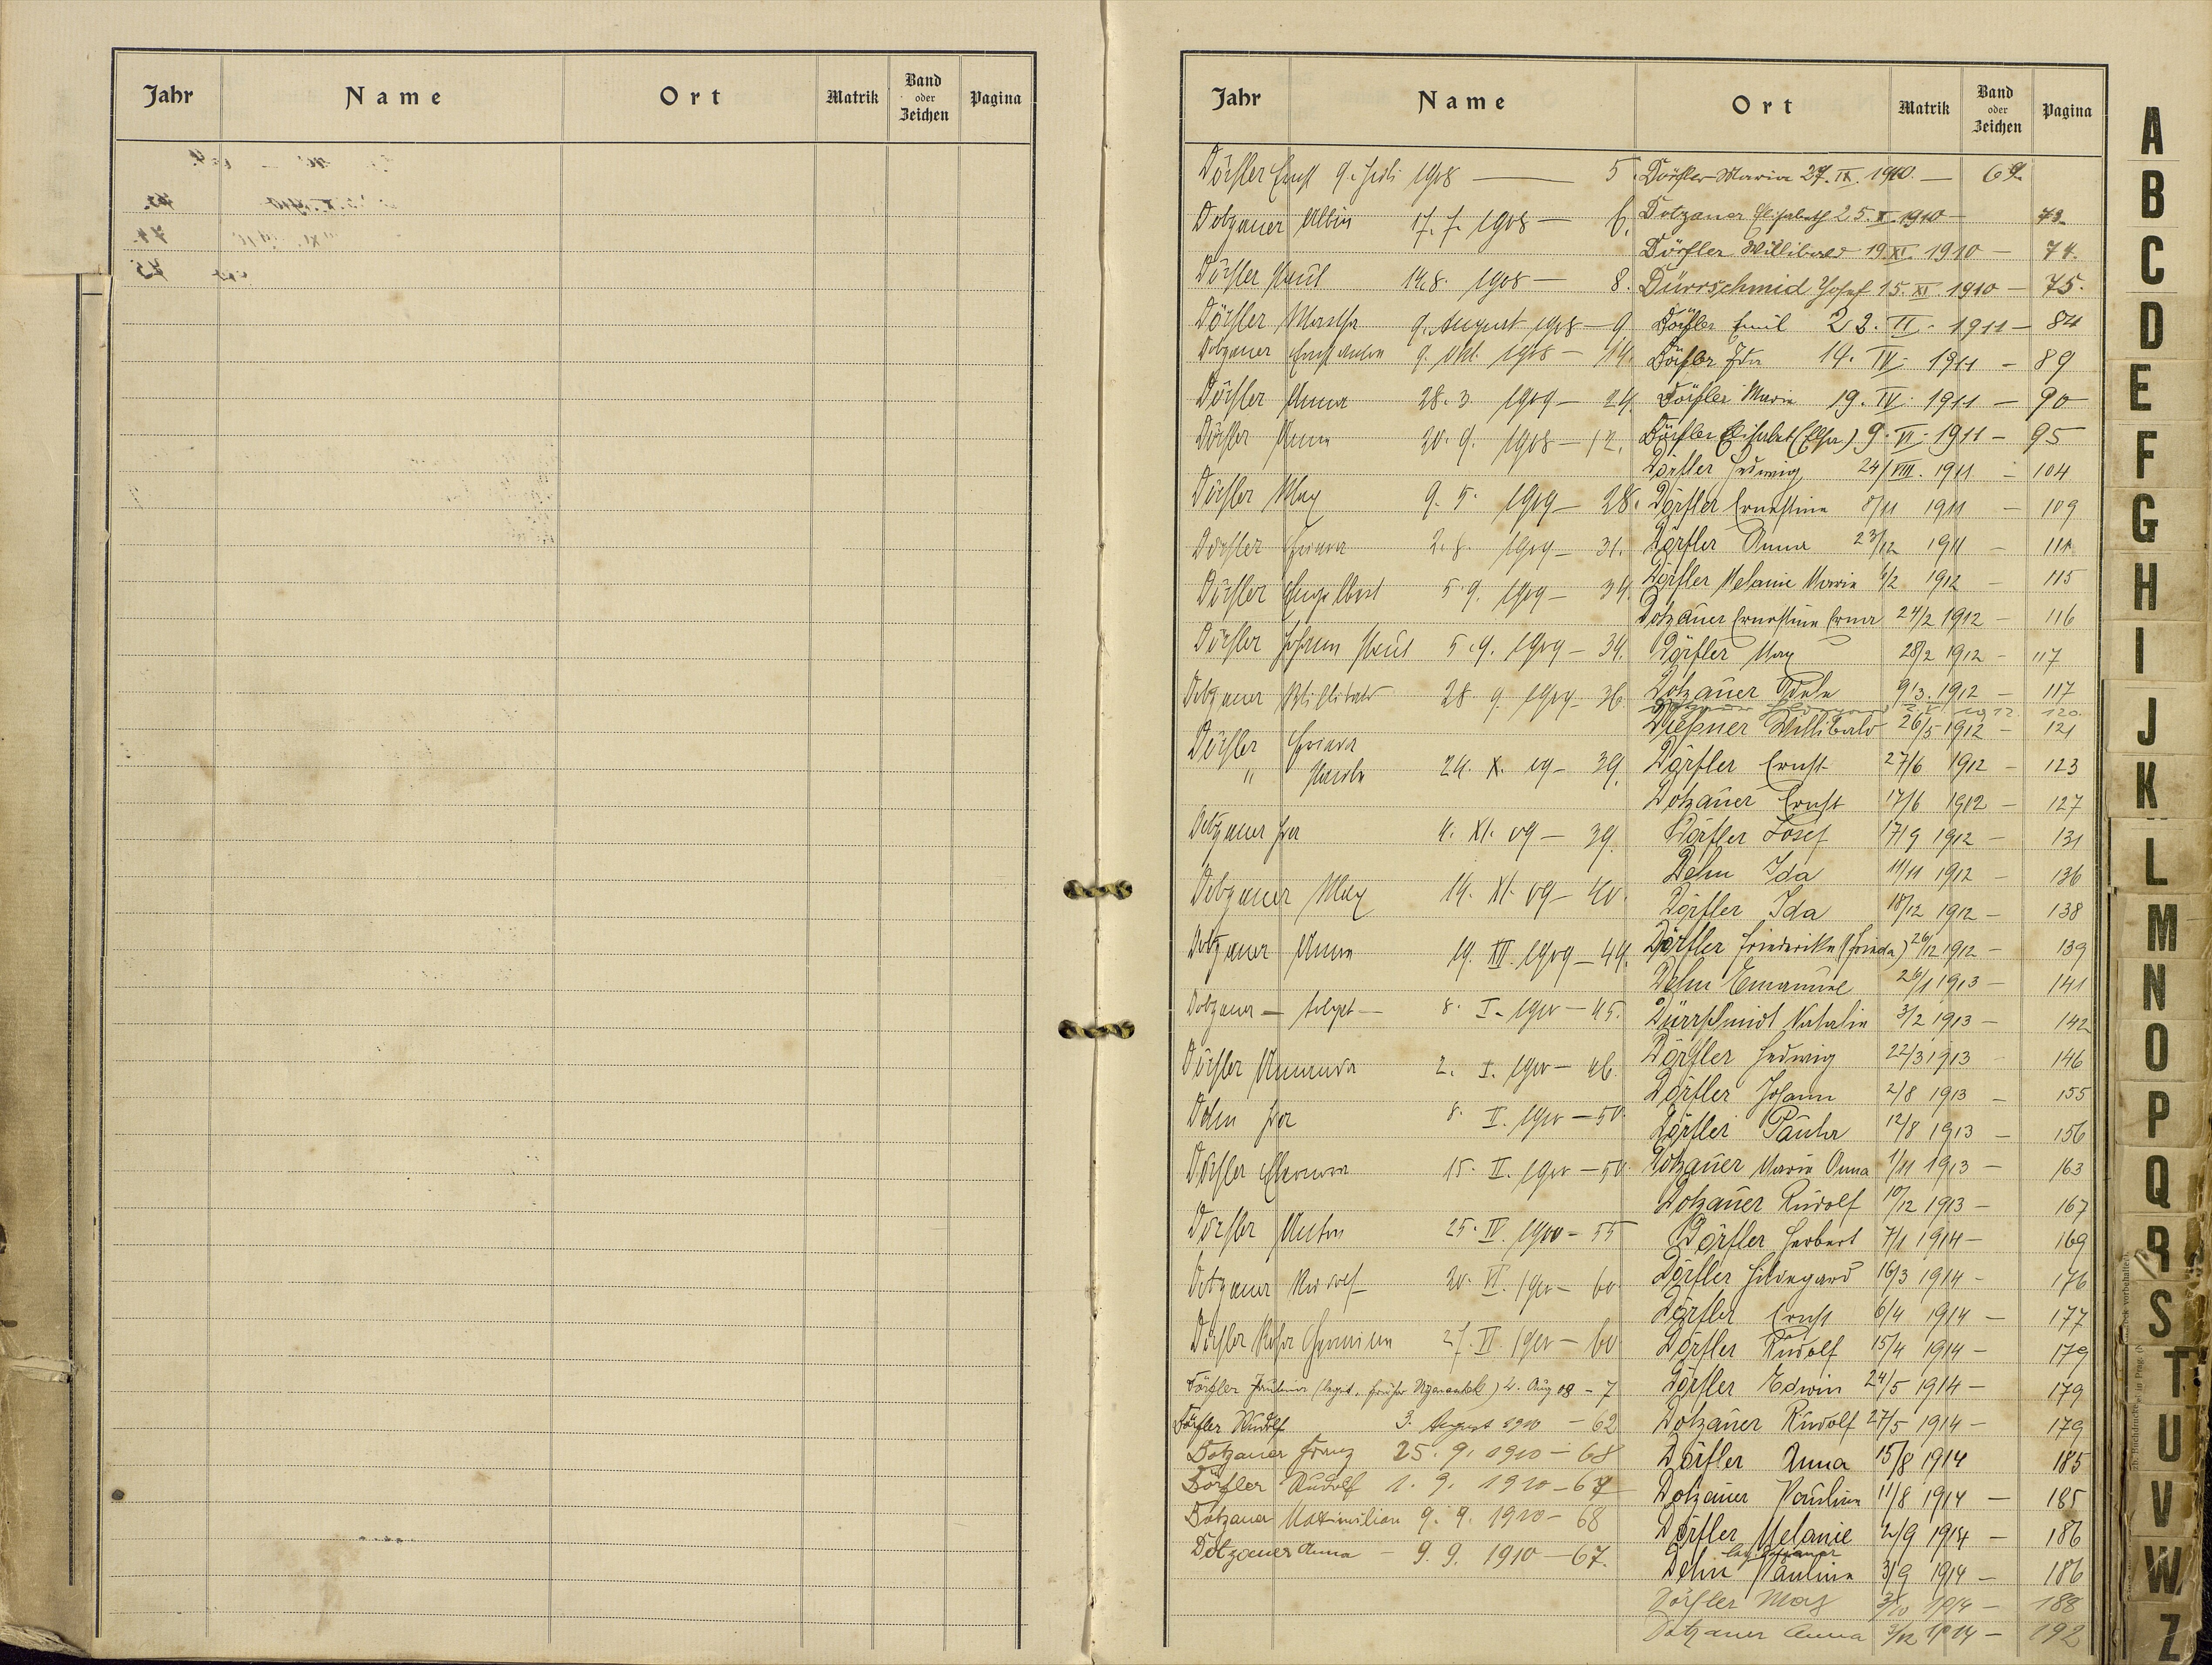 Jahr Name Ort Matrik Band oder Zeichen Pagina
Jahr Name Ort Matrik Band oder Zeichen Pagina
Dörfler Ernst 9. Juli 1908 — 5.
Dotzauer Albin 17. 7. 1908 — 6.
Dörfler Paul 14.8. 1908 — 8.
Dörfler Martha 9. August 1908 — 9
Dotzauer Ernst Anton 9. Okt. 1908 — 14.
Dörfler Anna 28. 3. 1909 — 24.
Dörfler Anna 20. 9. 1908 — 12.
Dörfler Max 9. 5. 1909 — 28.
Dörfler 1909 — 31.
Dörfler Engelbert 5. 9. 1909 — 34.
Dörfler Johann Paul 5. 9. 1909 — 34.
Dotzauer Willibald 28. 9. 1909 — 36
Dörfler
" 24. X. 09 — 39.
Dotzauer 4. XI. 09 — 39.
Dotzauer Max 14. XI. 09 — 40.
Dotzauer Anna 19. XII. 1909 — 44.
Dotzauer — — 8. I. 1910 — 45.
Dörfler 2. I. 1910 — 46.
Dehn 8. II. 1910 — 50.
Dörfler Eleonora 15. II. 1910 — 50.
Dörfler Anton 25. IV. 1910 — 55
Dotzauer Rudolf 20. VI. 1910 — 60
Dörfler Rosa 27. VI. 1910 — 60
Dörfler 2. Aug 08 — 7
Dörfler Rudolf 3. August 1910 — 62
Dotzauer Franz 25. 9. 1910 — 68
Dörfler Rudolf 1. 9. 1910 — 67
Dotzauer Maximilian 9. 9. 1910 — 68
Dotzauer Anna — 9. 9. 1910 — 67.
Dörfler Maria 27. IX. 1910. — 69.
Dotzauer Elisabeth 25. X. 1910 — 73.
Dörfler Willibald 19. XI. 1910 — 74.
Dürrschmid Josef 15. XI. 1910 — 75.
Dörfler Emil 23. II. 1911 — 84
Dörfler Ida 14. IV. 1911 — 89
Dörfler Maria 19. IV. 1911 — 90
Dörfler Elisabet (Elsa) 9. VI. 1911 — 95
Dörfler Hedwig 24/VIII. 1911 — 104
Dörfler Ernestine 8/11 1911 — 109
Dörfler Anna 23/12 1911 — 111
Dörfler Melanie Maria 4/2 1912 — 115
Dotzauer Ernestine Erna 24/2 1912 — 116
Dörfler Max 28/2 1912 — 117
Dotzauer Adele 9/3. 1912 — 117
Dotzauer 1912 120.
Diessner Willibald 26/5 1912 — 121
Dörfler Ernst 27/6 1912 — 123
Dotzauer Ernst 17/6 1912 — 127
Dörfler Josef 17/9 1912 — 131
Dehn Ida 11/11 1912 — 136
Dörfler Ida 18/12 1912 — 138
Dörfler Friederike (Frieda) 26/12 1912 — 139
Dehn Emanuel 26/1 1913 — 141
Dürrschmidt Natalie 3/2 1913 — 142
Dörfler Hedwig 22/3 1913 — 146
Dörfler Johann 2/8 1913 — 155
Dörfler Paula 12/8 1913 — 156
Dotzauer Maria Anna 1/11 1913 — 163
Dotzauer Rudolf 10/12 1913 — 167
Dörfler Herbert 7/1 1914 — 169
Dörfler Hildegard 16/3 1914 — 176
Dörfler Ernst 6/4 1914 — 177
Dörfler Rudolf 15/4 1914 — 179
Dörfler Edwin 24/5 1914 — 179
Dotzauer Rudolf 27/5 1914 — 179
Dörfler Anna 15/8 1914 185
Dotzauer Pauline 11/8 1914 — 185
Dörfler Melanie 2/9 1914 — 186
Dehn Pauline 3/9 1914 — 186
Dörfler Max 3/10 1914 — 188
Dotzauer Anna 3/12 1914 — 192
A
B
C
D
E
F
G
H
I
J
K
L
M
N
O
P
Q
R
S
T
U
V
W
Z